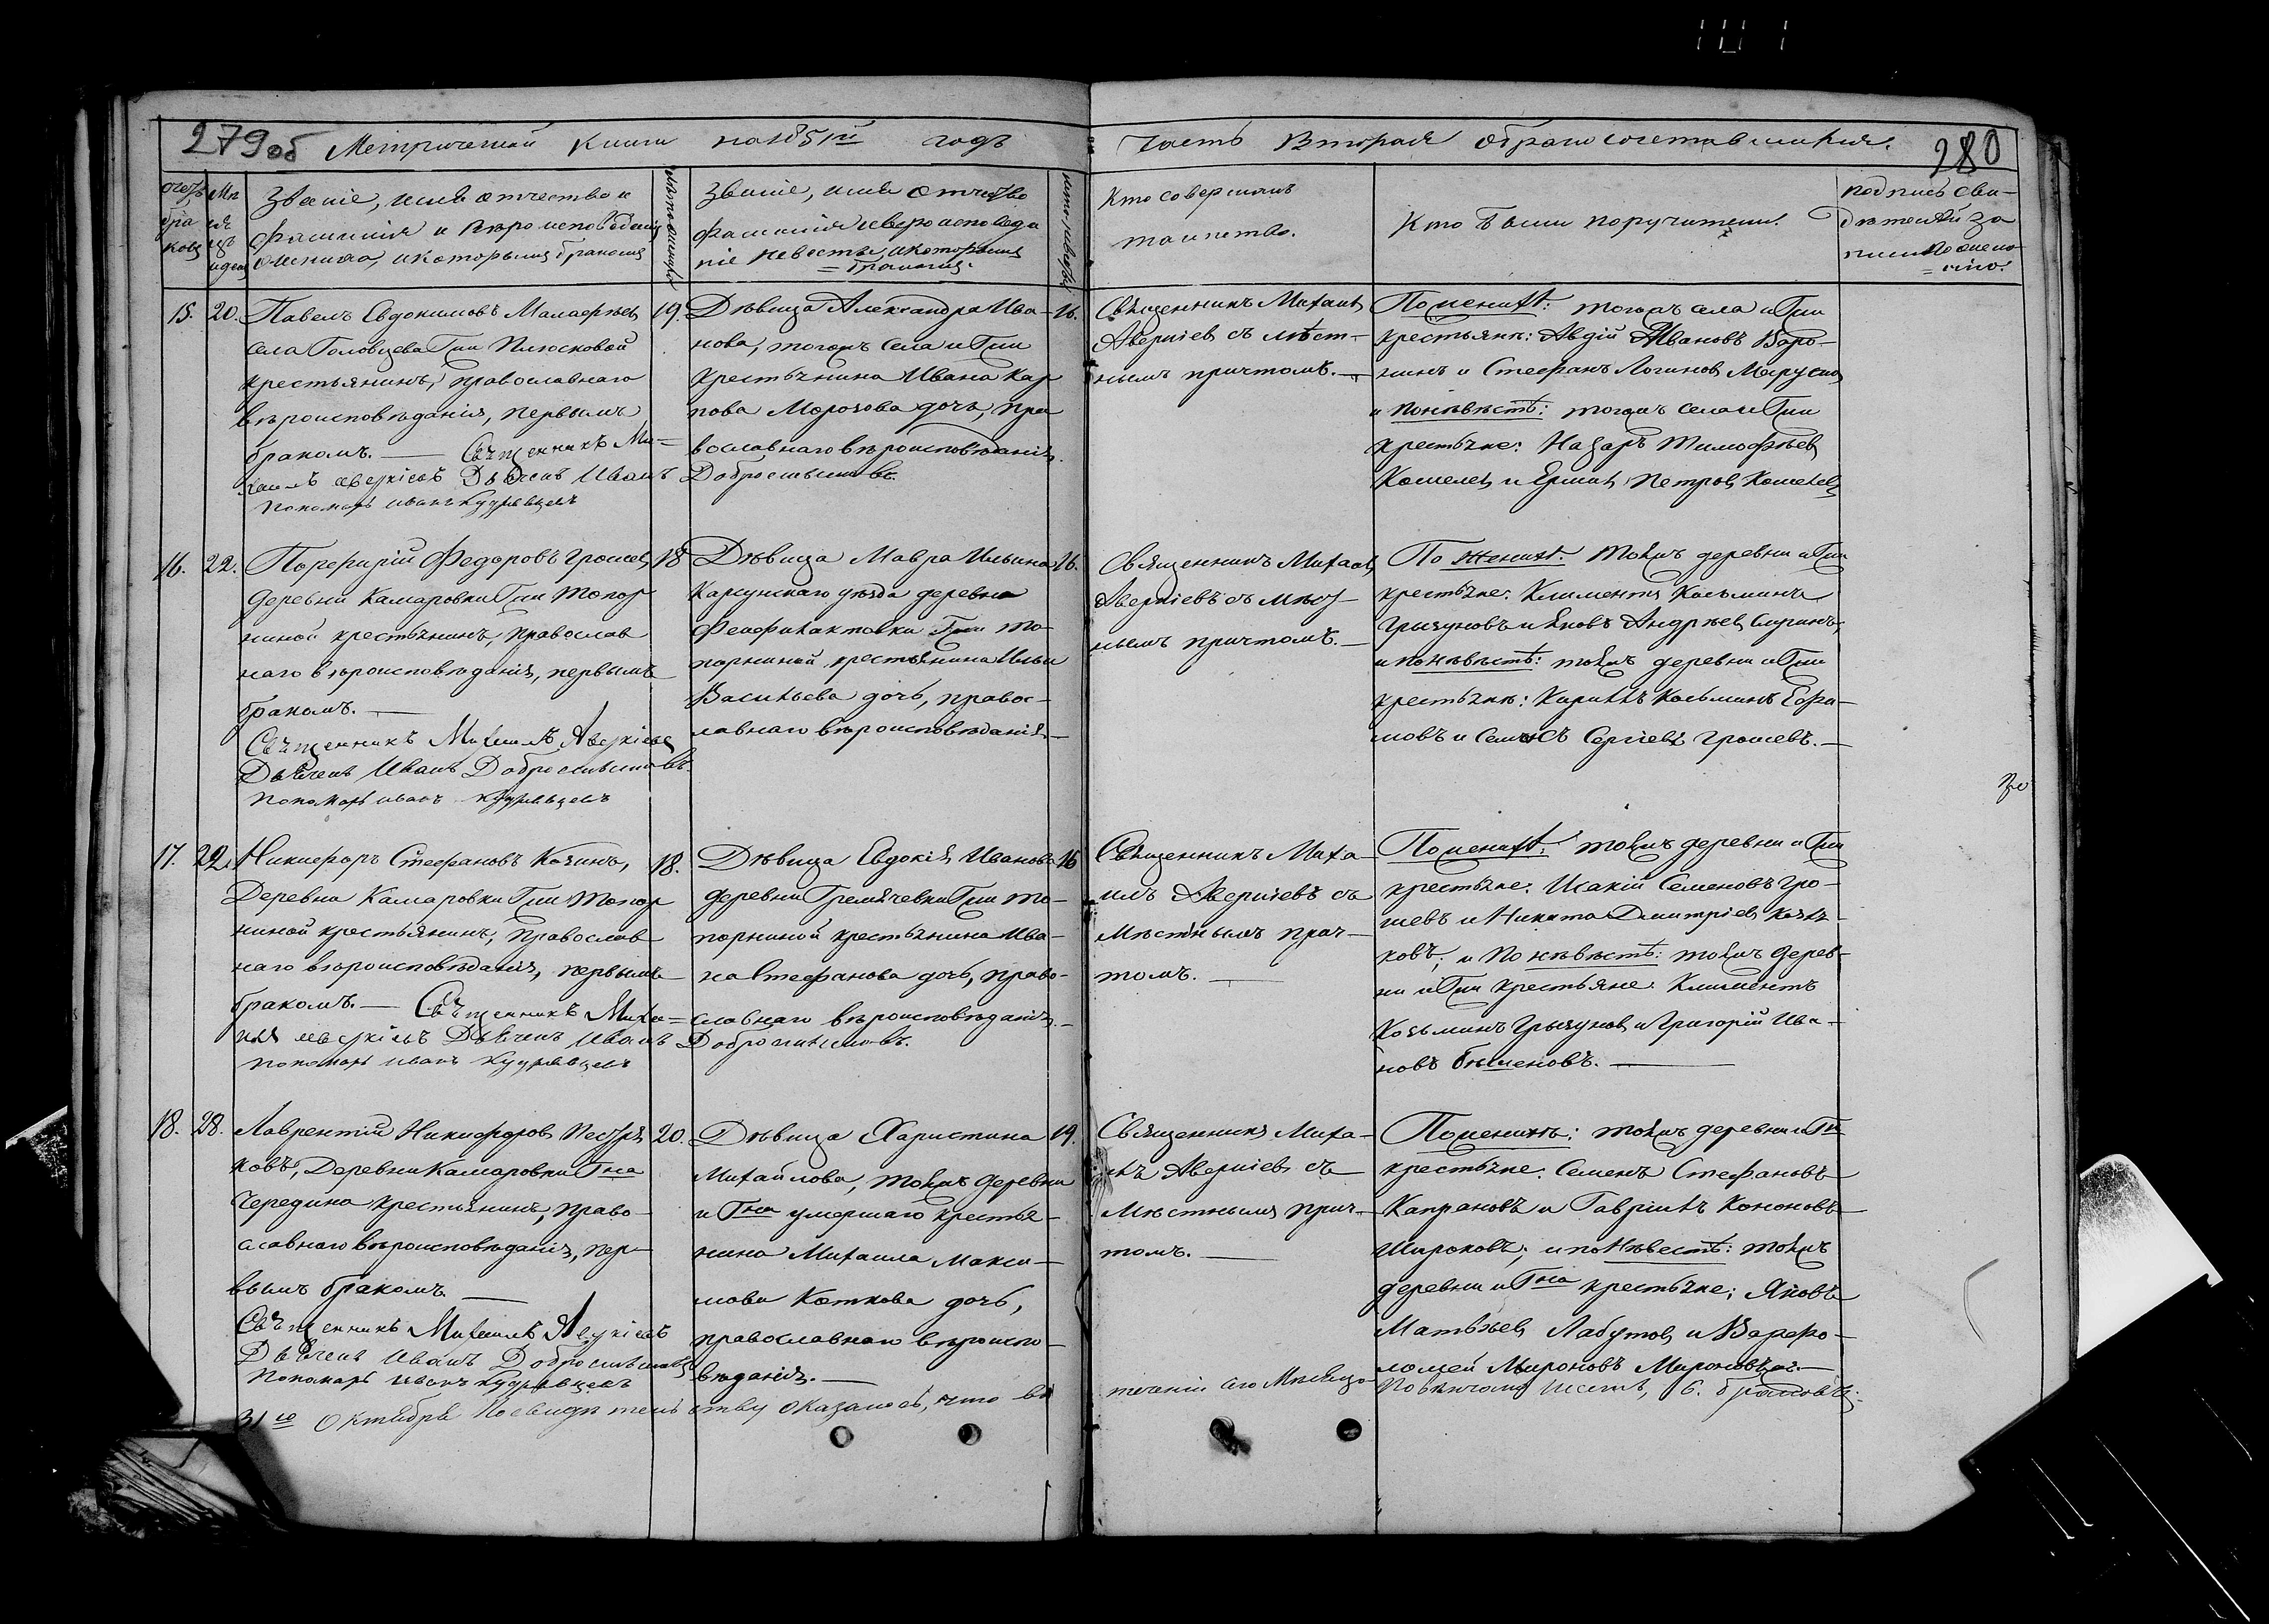 279 об Метрической Книги на 1851й годъ
Часть Вторая о бракосочетавшихся.
280
Званіе, имя отчество и
фамилія и вѣроисповѣданія
жениха, и которымъ бракомъ
Званіе, имя отчество
фамилія и вероисповеда
ніе невесты, и которымъ
= бракомъ.
Кто совершалъ
таинство.
Кто были поручители.
подпись сви-
дѣтелей за
15. 20.
Павелъ Евдокимовъ Малафѣев
села Головцева Гжи Плюсковой
крестьянинъ, православнаго
вѣроисповѣданія, первымъ
бракомъ. — Свѣщенникъ Ми=
хаилъ Аверкіевъ Дьячекъ Иванъ Добросмысловъ.
Пономарь иванъ Кудрявцевъ
19.
Дѣвица Александра Ива-
нова, тогожъ села и Гжи
крестьянина Ивана Кар
пова Морозова дочь, пра
вославнаго вѣроисповѣданія.
16.
Священникъ Михаилъ
Аверкіев съ мѣст-
нымъ причтомъ. —
По женихѣ: тогожъ села и Гжи
крестьяне: Авдій Ивановъ Варо-
нинъ и Стефанъ Логинов
и по невѣстѣ: тогожъ села и Гжи
крестьяне: Назаръ Тимофѣев
Кошелев и Ермил Петров Кошелев
16. 22.
Порфирій Федоровъ Грошев
деревни Камаровки Гжи Топор
ниной крестьянинъ, православ
наго вѣроисповѣданія, первымъ
бракомъ. —
Свѣщенникъ Михаилъ Аверкіевъ
Дьячекъ Иванъ Добросмысловъ.
Пономарь иванъ Кудрявцевъ
18
Дѣвица Мавра Ильина
Карсунскаго уѣзда деревни
Феофилактовки Гжи То-
порниной, крестьянина Ильи
Васильева дочь, правос-
лавнаго вѣроисповѣданія. —
16.
Священникъ Михаилъ
Аверкіевъ съ мѣст-
нымъ причтомъ. —
По женихѣ: тойжъ деревни и Гжи
крестьяне: Климентъ Козьминъ
Грызуновъ и Яковъ Андрѣев
и по невѣстѣ: тойжъ деревни и Гжи
крестьяне: Кирилъ Козьминъ Ефи-
мовъ и Семенъ Сергіевъ Грошевъ. —
17. 22.
Никифоръ Стефановъ Козинъ,
Деревни Камаровки Гжи Топор
ниной крестьянинъ, Православ
наго вѣроисповѣданія, первымъ
бракомъ. — Свѣщенникъ Миха=
илъ Аверкіевъ Дьячекъ Иванъ Добросмысловъ.
Пономарь иванъ Кудрявцевъ
18.
Дѣвица Евдокія Иванова
деревни Гремячевки Гжи То-
порниной крестьянина Ива-
на Стефанова дочь, право-
славнаго вѣроисповѣданія. —
16
Священникъ Миха-
илъ Аверкіевъ съ
Мѣстнымъ прич-
томъ. —
По женихѣ: тойжъ деревни и Гжи
крестьяне: Исакій Семеновъ Гро-
шевъ и Никита Дмитріев
ковъ; и по невѣстѣ: тойжъ дерев-
ни и Гжи крестьяне: Климентъ
Козьминъ Грызунов и Григорій Ива-
новъ —
18. 28.
Лаврентій Никифоров Пестря
ковъ, Деревни Камаровки Гна
Чередина крестьянинъ, право-
славнаго вѣроисповѣданія, пер-
вымъ бракомъ. —
Свѣщенникъ Михаилъ Аверкіевъ
Дьячекъ Иванъ Добросмысловъ
Пономарь иванъ Кудрявцевъ
20.
Дѣвица Харистина
Михайлова, тойжъ деревни
и Гна умершаго крестья-
нина Михаила Макси-
мова Коткова дочь,
православнаго вѣроиспо-
вѣданія. —
19.
Священникъ Миха-
илъ Аверкіев съ
Мѣстнымъ прич-
томъ. —
По женихѣ: тойжъ деревни и Гна
крестьяне: Семенъ Стефановъ
Капрановъ и Гавріилъ Кононовъ
Широковъ; и по невестѣ: тойжъ
деревни и Гна крестьяне: Яковъ
Матвѣев Лабутов и Варфо-
ломей Мироновъ Мироновъ. —
31го Октября По свидѣтельству оказалось, что въ
теченіи сего Мѣсяца Повѣнчано шесть, 6. браковъ.